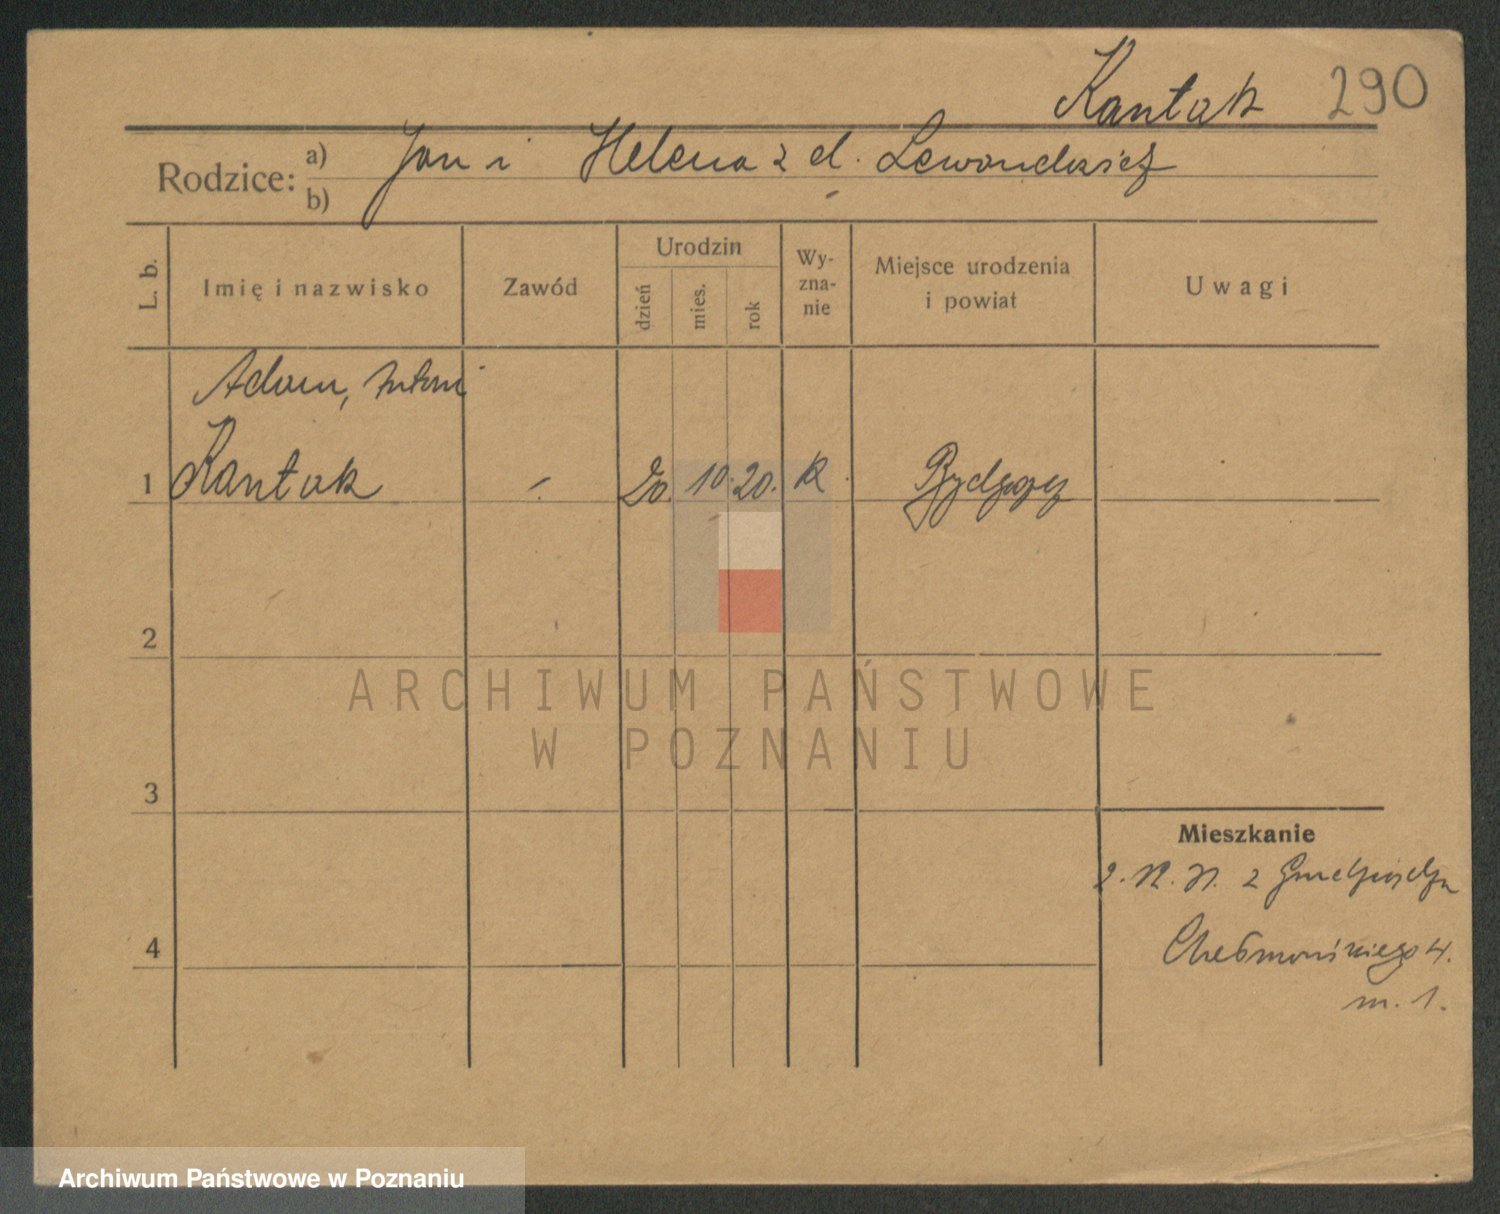 Kantak 290
Rodzice: a) Jan i Helena z d. Lewandowskiej
b)
L. b.
Imię i nazwisko
Zawód
Urodzin
dzień
mies.
rok
Wy-
zna-
nie
Miejsce urodzenia
i powiat
Uwagi
Adam, Antoni
1 Kantak - 20. 10. 20. R. Bydgoszcz
2
ARCHIWUM PAŃSTWOWE
W POZNANIU
3
Mieszkanie
2. IV. 21. z
4
Chełmońskiego 4.
m. 1.
Archiwum Państwowe w Poznaniu